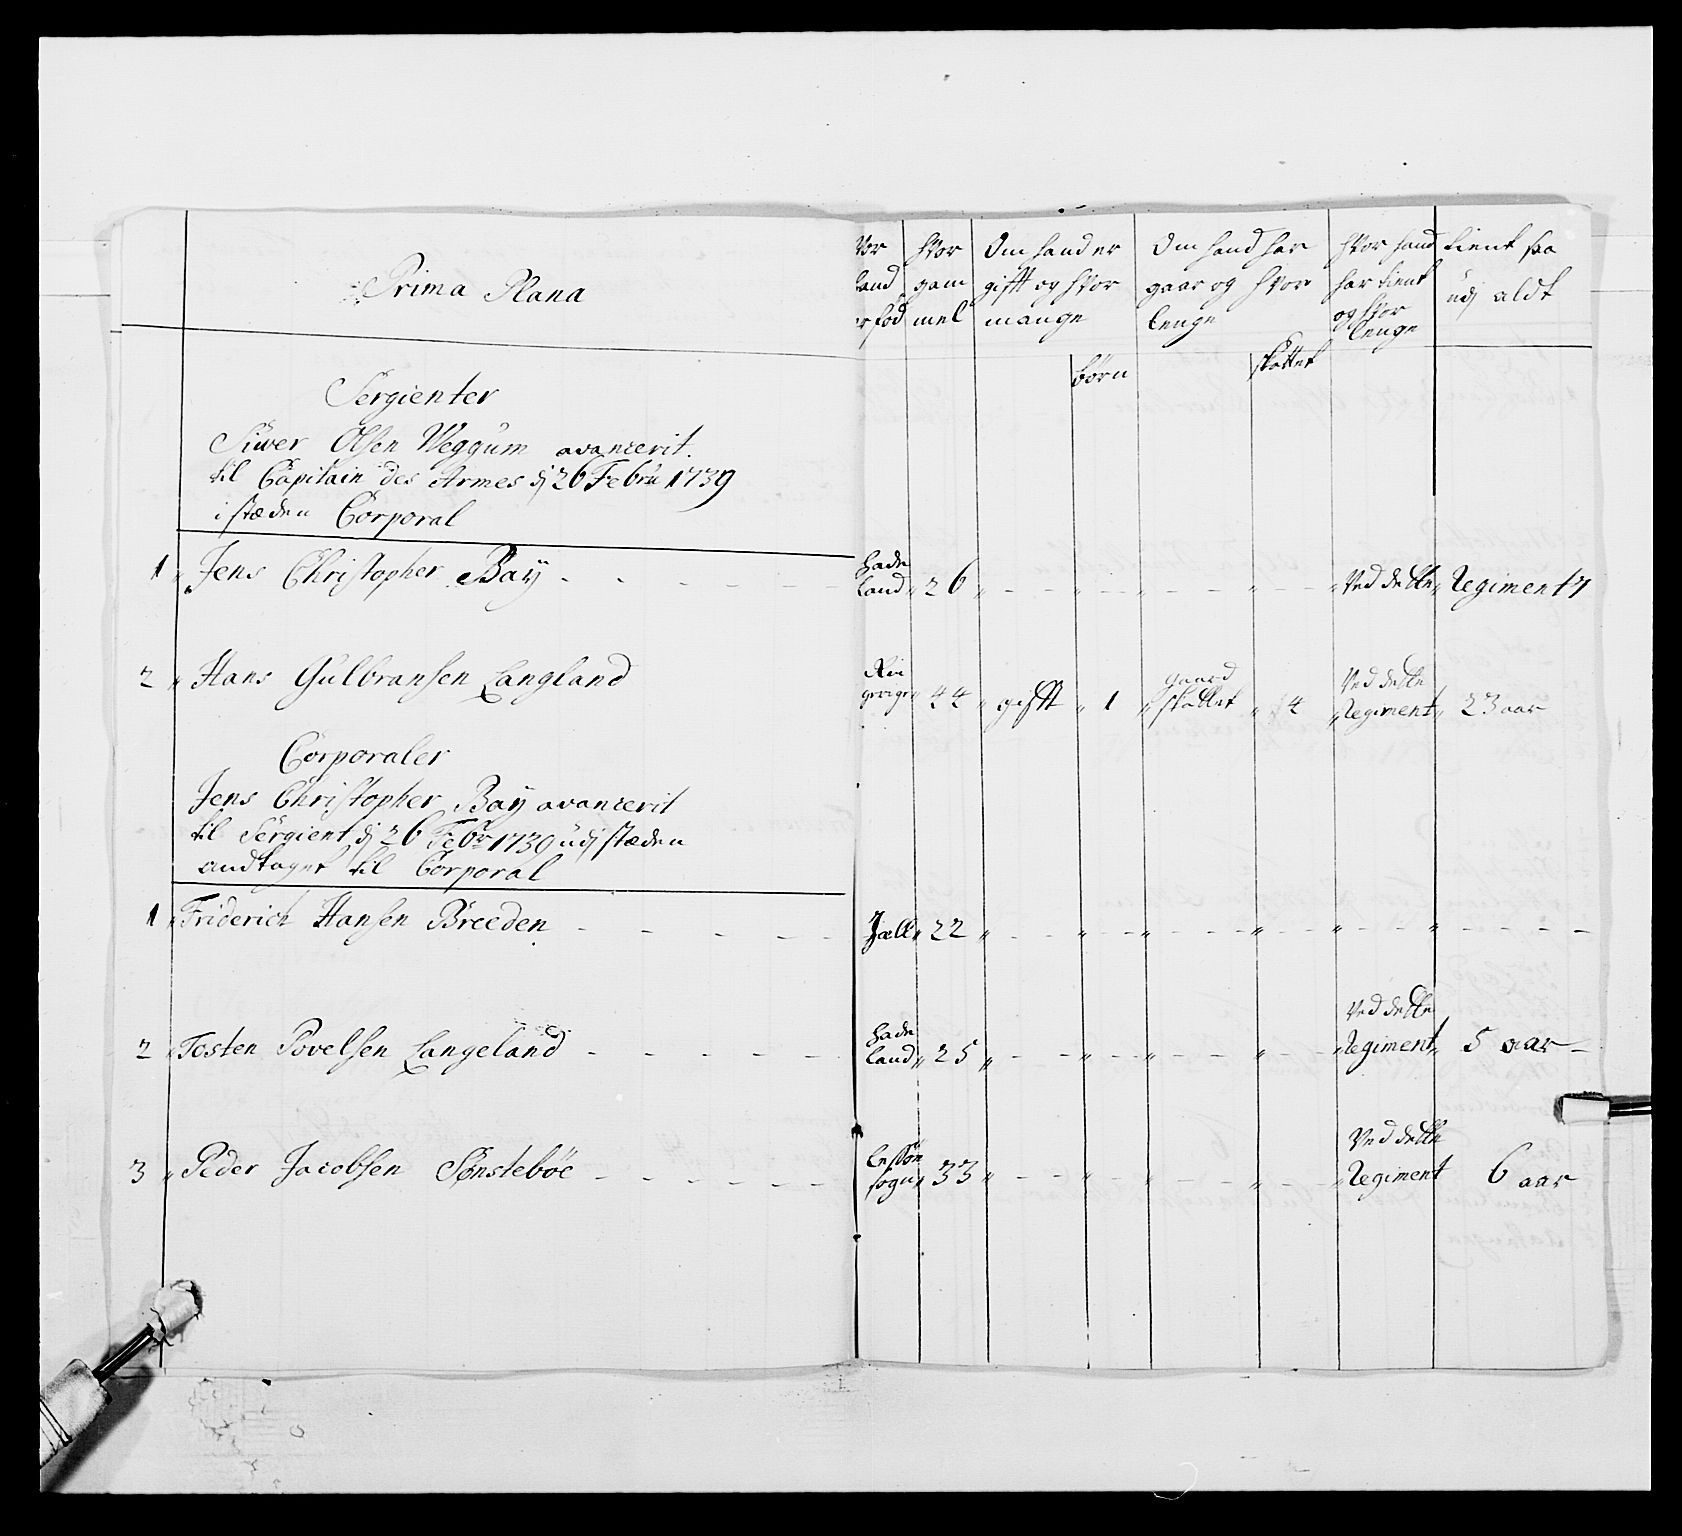 Prima Plana
Vor land er fød
hvor gam mel
Om hand er gifft og hvor mange
børn
Om hand har gaar og hvor lenge
skattet
hvor hand har tient og hvor lenge
tient paa udj aldt
Sergienter
Siwer Olsen Weggum avancerit
til Capitain des Armes dj 26 Febru 1739
i stæden Corporal
1 Jens Christopher Bay - - - - - Hade land 26 Ved dette Regiment 7
2 Hans Gulbransen Langland Rin gerige 44 gifft 1 gaard skattet 4 Ved dette Regiment 23 aar
Corporaler
Jens Christopher Bay avancerit
til Sergient dj 26 Febr 1739 udj stæden
andtaget til Corporal
1 Friderich Hansen Breeden - - - - - Jæll 22
2 Tosten Povelsen Langeland - - - - Hade land 25 Ved dette Regiment 5 aar
3 Peder Jacobsen Sønstebøe - - - - - - Lessøe sogn 33 Ved dette Regiment 6 aar